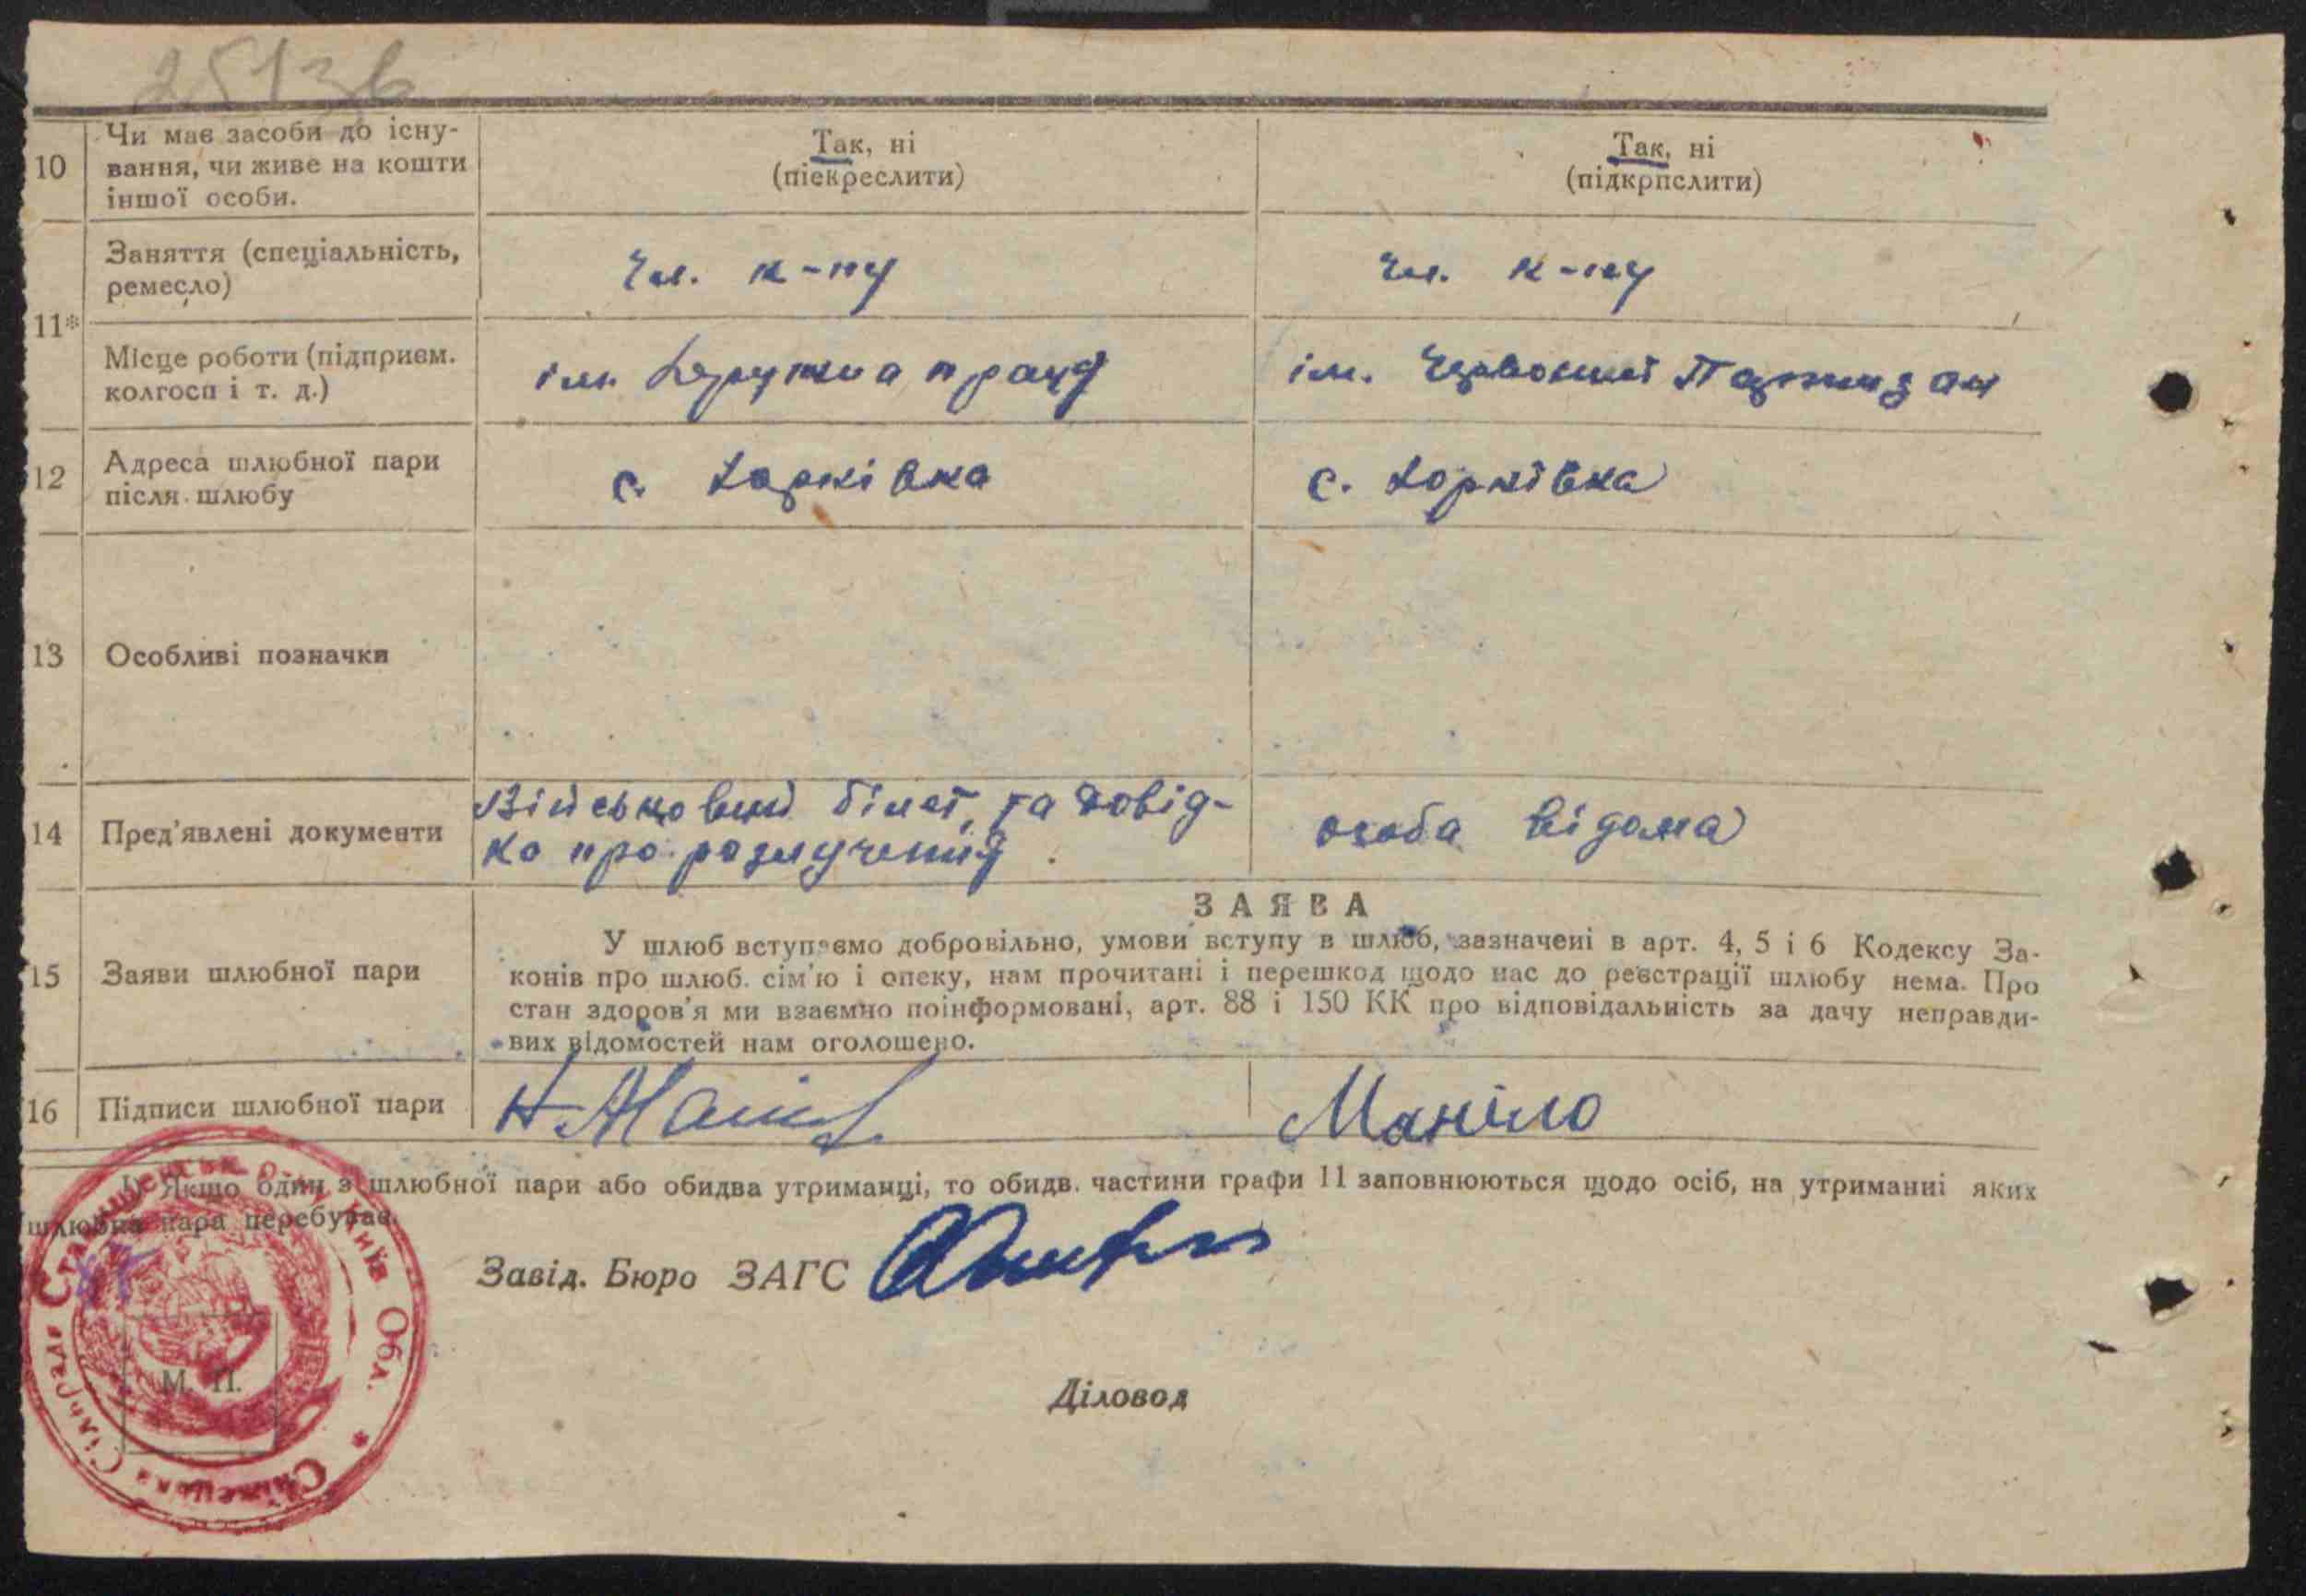 25136
10 Чи має засоби до існу-
вання, чи живе на кошти
іншої особи.
Так, ні
(піекреслити)
Так, ні
(підкрпслити)
11*
Заняття (спеціальність,
ремесло)
Чл. к-пу
Чл. к-пу
Місце роботи (підприєм.
колгосп і т. д.)
ім. Дружна праця
ім. Червоний Партизан
12 Адреса шлюбної пари
після шлюбу
с.
с.
13 Особливі позначки
14 Пред'явлені документи
Військовий білет, та довід-
ка про розлучення
особа відома
ЗАЯВА
15 Заяви шлюбної пари
У шлюб вступаємо добровільно, умови вступу в шлюб, зазначені в арт. 4, 5 і 6 Кодексу За-
конів про шлюб. сім'ю і опеку, нам прочитані і перешкод щодо нас до реєстрації шлюбу нема. Про
стан здоров'я ми взаємно поінформовані, арт. 88 і 150 КК про відповідальність за дачу неправди-
вих відомостей нам оголошено.
16 Підписи шлюбної пари
Маніло
1) Якщо один з шлюбної пари або обидва утриманці, то обидв. частини графи 11 заповнюються щодо осіб, на утриманні яких
шлюбна пара перебуває.
Завід. Бюро ЗАГС
М. П.
Діловод
Сільрада
Обл.